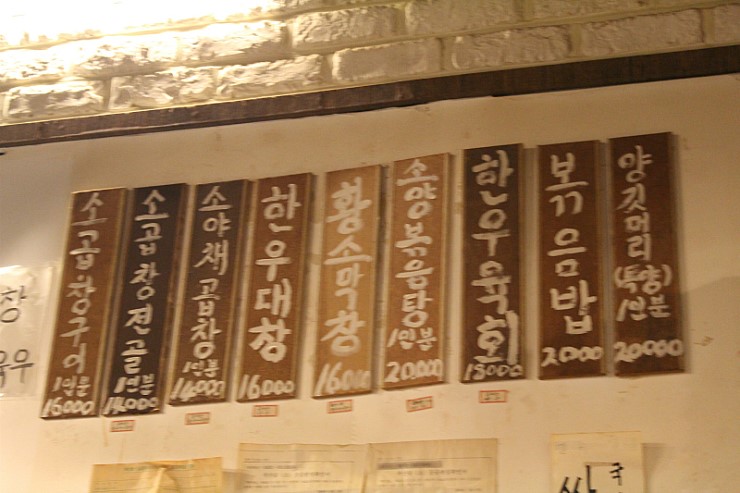 소곱창구이
1인분
16000
소곱창전골
1인분
14000
소야채곱창
1인분
14000
한우대창
16000
황소막창
16000
소양볶음탕
1인분
20.000
한우육회
볶음밥
2000
양깃머리
(특양)
1인분
20000
창
육우